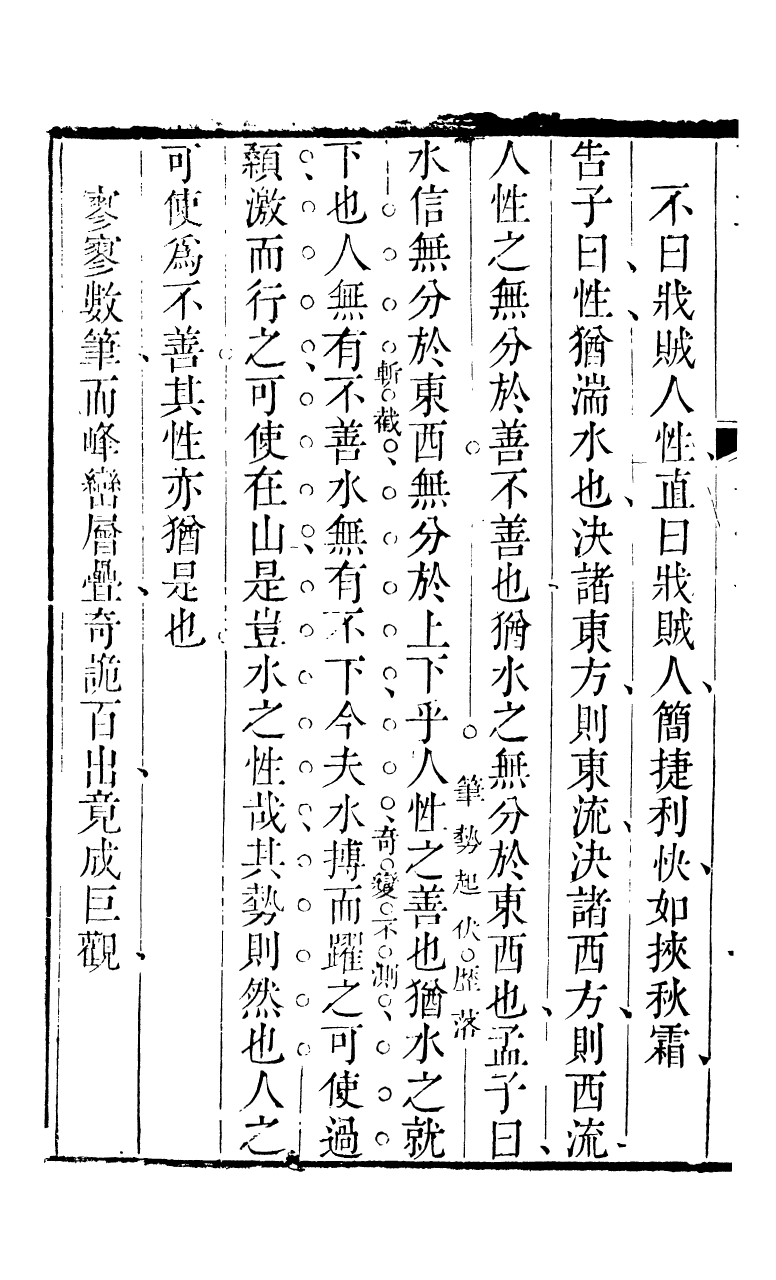 不曰戕賊人性直曰戕賊人簡捷利快如挾秋霜
告子曰性猶湍水也決諸東方則東流決諸西方則西流
人性之無分於善不善也猶水之無分於東西也孟子曰
筆勢起伏歷落
水信無分於東西無分於上下乎人性之善也猶水之就
斬截
奇變不測
下也人無有不善水無有不下今夫水搏而躍之可使過
顙激而行之可使在山是豈水之性哉其勢則然也人之
可使爲不善其性亦猶是也
寥寥數筆而峰巒層疊奇詭百出竟成巨觀